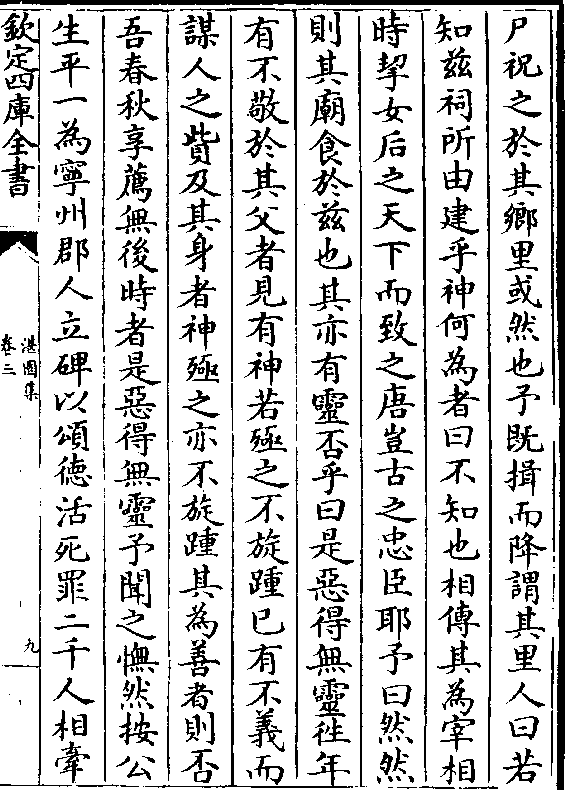 尸祝之於其鄉里或然也予既揖而降謂其里人曰若
知兹祠所由建乎神何為者曰不知也相傳其為宰相
時挈女后之天下而致之唐豈古之忠臣耶予曰然然
則其廟食於兹也其亦有靈否乎曰是惡得無靈徃年
有不敬於其父者見有神若殛之不旋踵已有不義而
謀人之貲及其身者神殛之亦不旋踵其為善者則否
吾春秋享薦無後時者是惡得無靈予聞之憮然按公
生平一為寧州郡人立碑以頌德活死罪二千人相牽
欽定四庫全書
湛園集
卷三
九